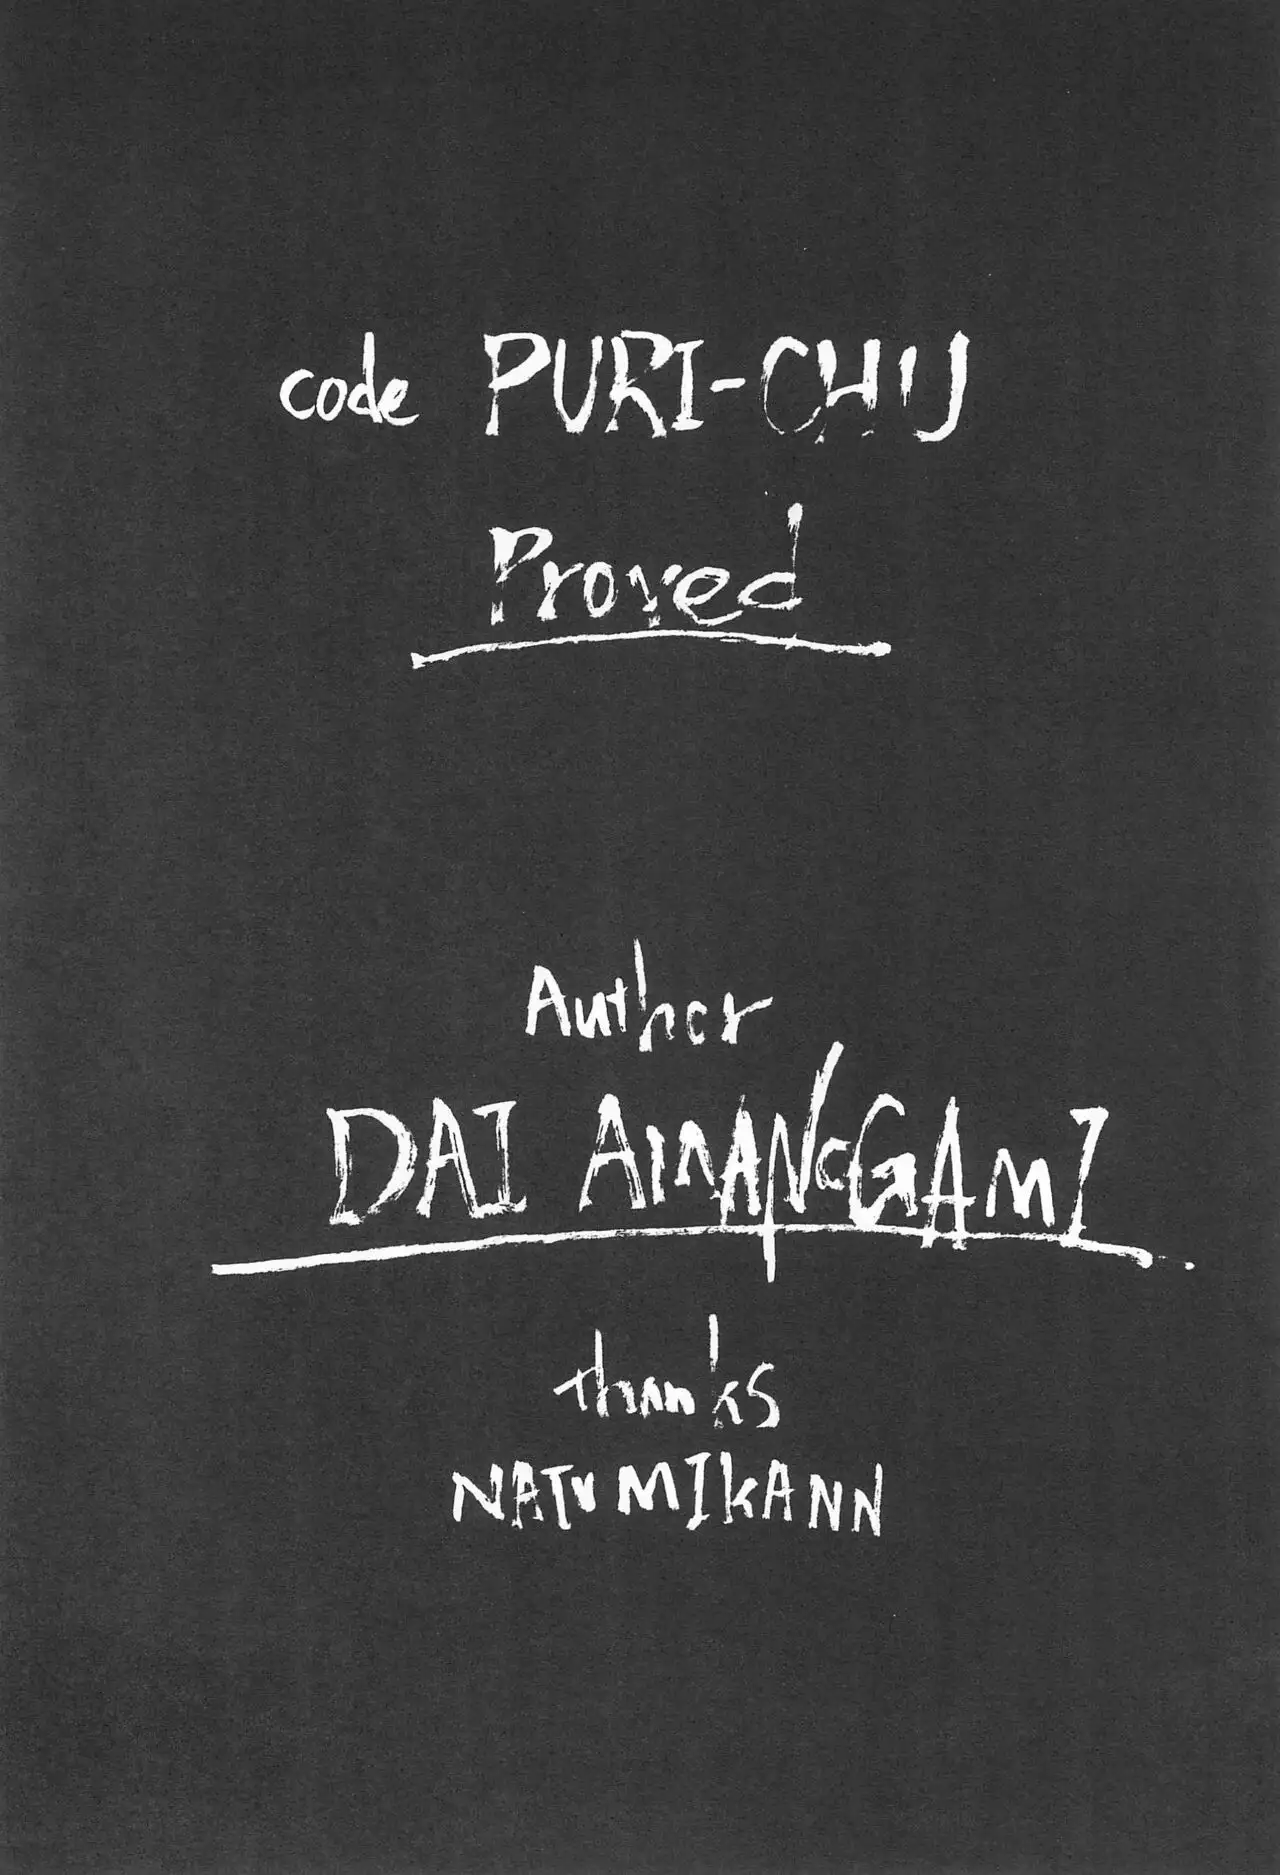 code PURI-CHU
Proved
Author
DAI
thanks
NATUMIKANN